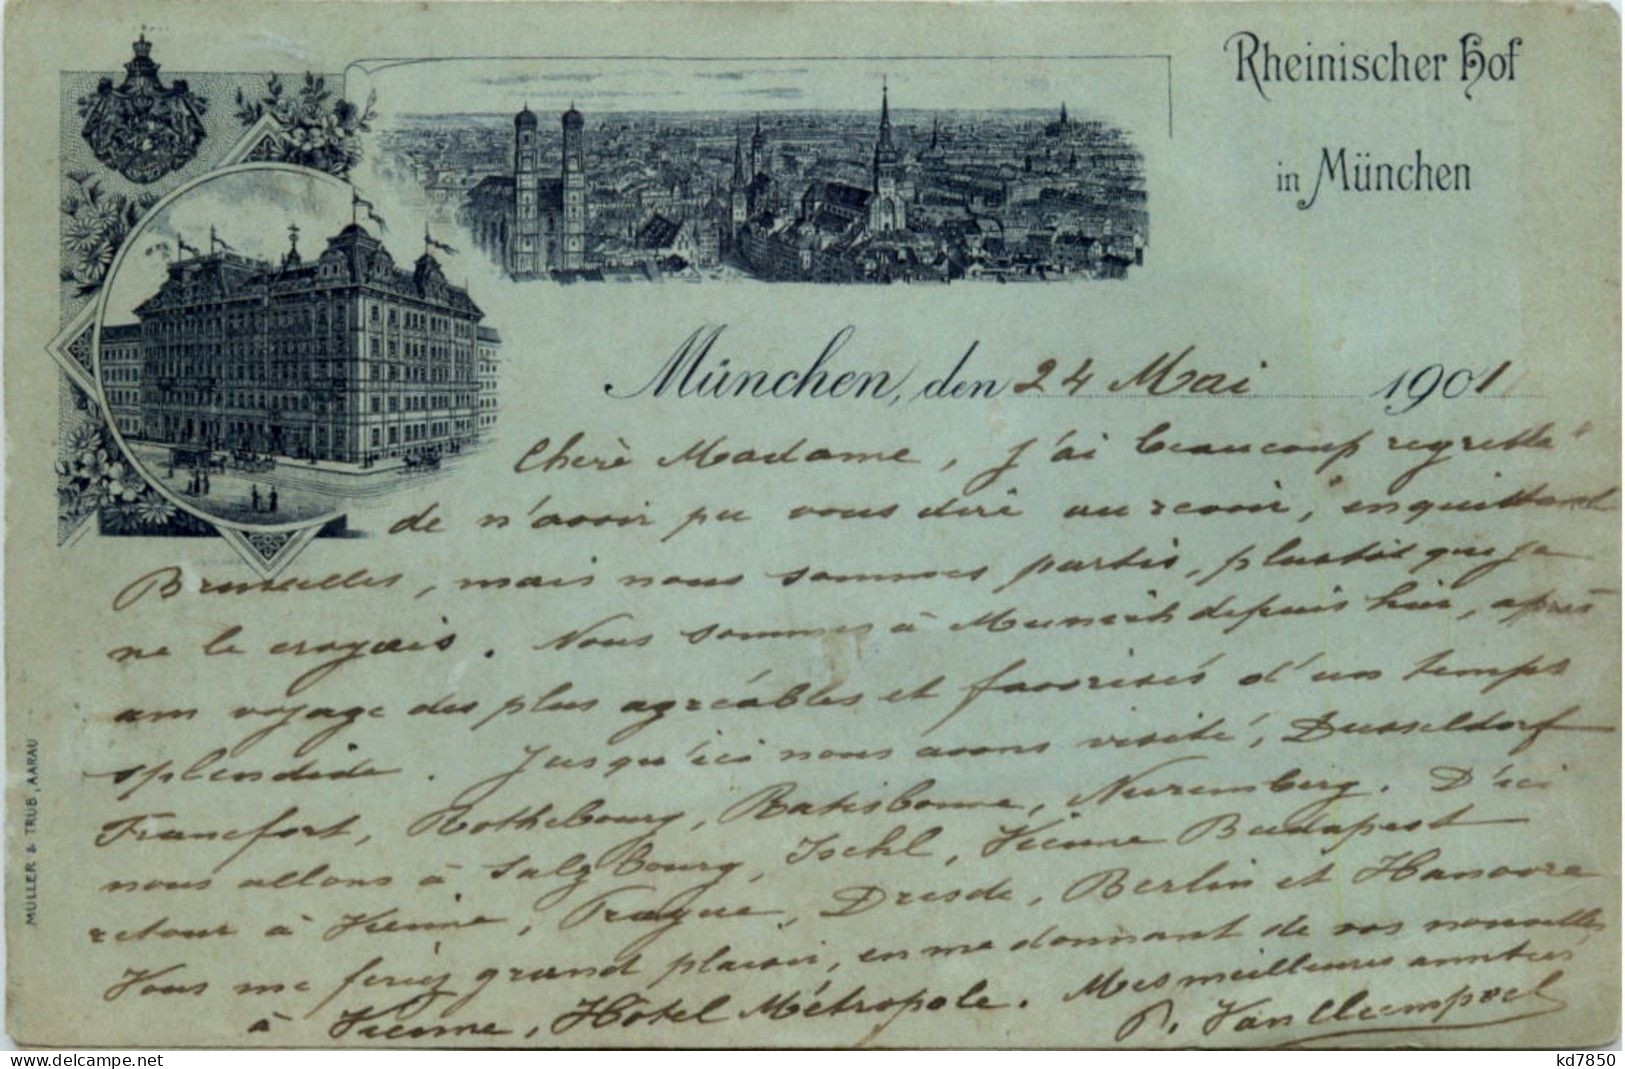 Rheinischer Hof
in München
München, den 24 Mai 1901
Cherè Madame, J'ai beaucoup regretté
de n'avoir pu vous dirè au revoir, en quittant
Bruxelles, mais nous sommes partis, plustôt que je
ne le croyais. Nous sommes à Munich depuis hier, après
um voyage des plus agréables et favorisés d'un temps
splendide. Jusqu'ici nous avons visité, Dusseldorf
Francfort, Rothebourg, Ratisbonne, Nuremberg. D'ici
nous allons à Salzbourg, Ischl, Vienne Budapest
retour à Vienne, Prague, Dresde, Berlin et Hanovre
Vous me feriez grand plaisir, en me donnant de vos nouvelles
à Vienne, Hôtel Métropole. Mes meilleures amitiés
P. Van
MÜLLER & TRÜB, AARAU
kd7850